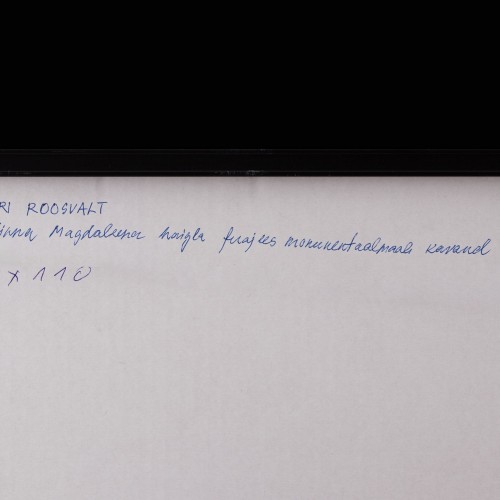 RI ROOSVALT
linna Magdaleena haigla fuajees monumentaalmaali kavand
x 110